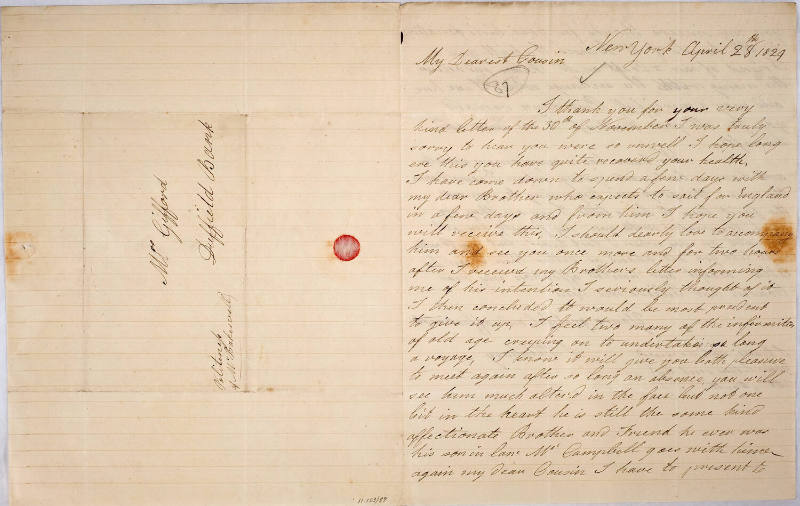 Mrs Gifford
Duffield Bank
Politeness
of Mr
New York April 28th 1829
My Dearest Cousin
37
I thank you for your very
kind letter of the 30th of November I was truly
sorry to hear you were so unwell I hope long
ere this you have quite recovered your health,
I have come down to spend a few days with
my dear Brother who expects to sail for England
in a few days and from him I hope you
will receive this, I should dearly love to accompany
him and see you once more and for two hours
after I received my Brother's letter informing
me of his intention I seriously thought of it
I then concluded it would be most prudent
to give it up, I feel two many of the infirmities
of old age creeping on to undertake so long
a voyage, I know it will give you both pleasure
to meet again after so long an absence, you will
see him much alter'd in the face but not one
bit in the heart he is still the same kind
affectionate Brother and Friend he ever was
his son in law Mr Campbell goes with him
again my dear Cousin I have to present to
11.123/87